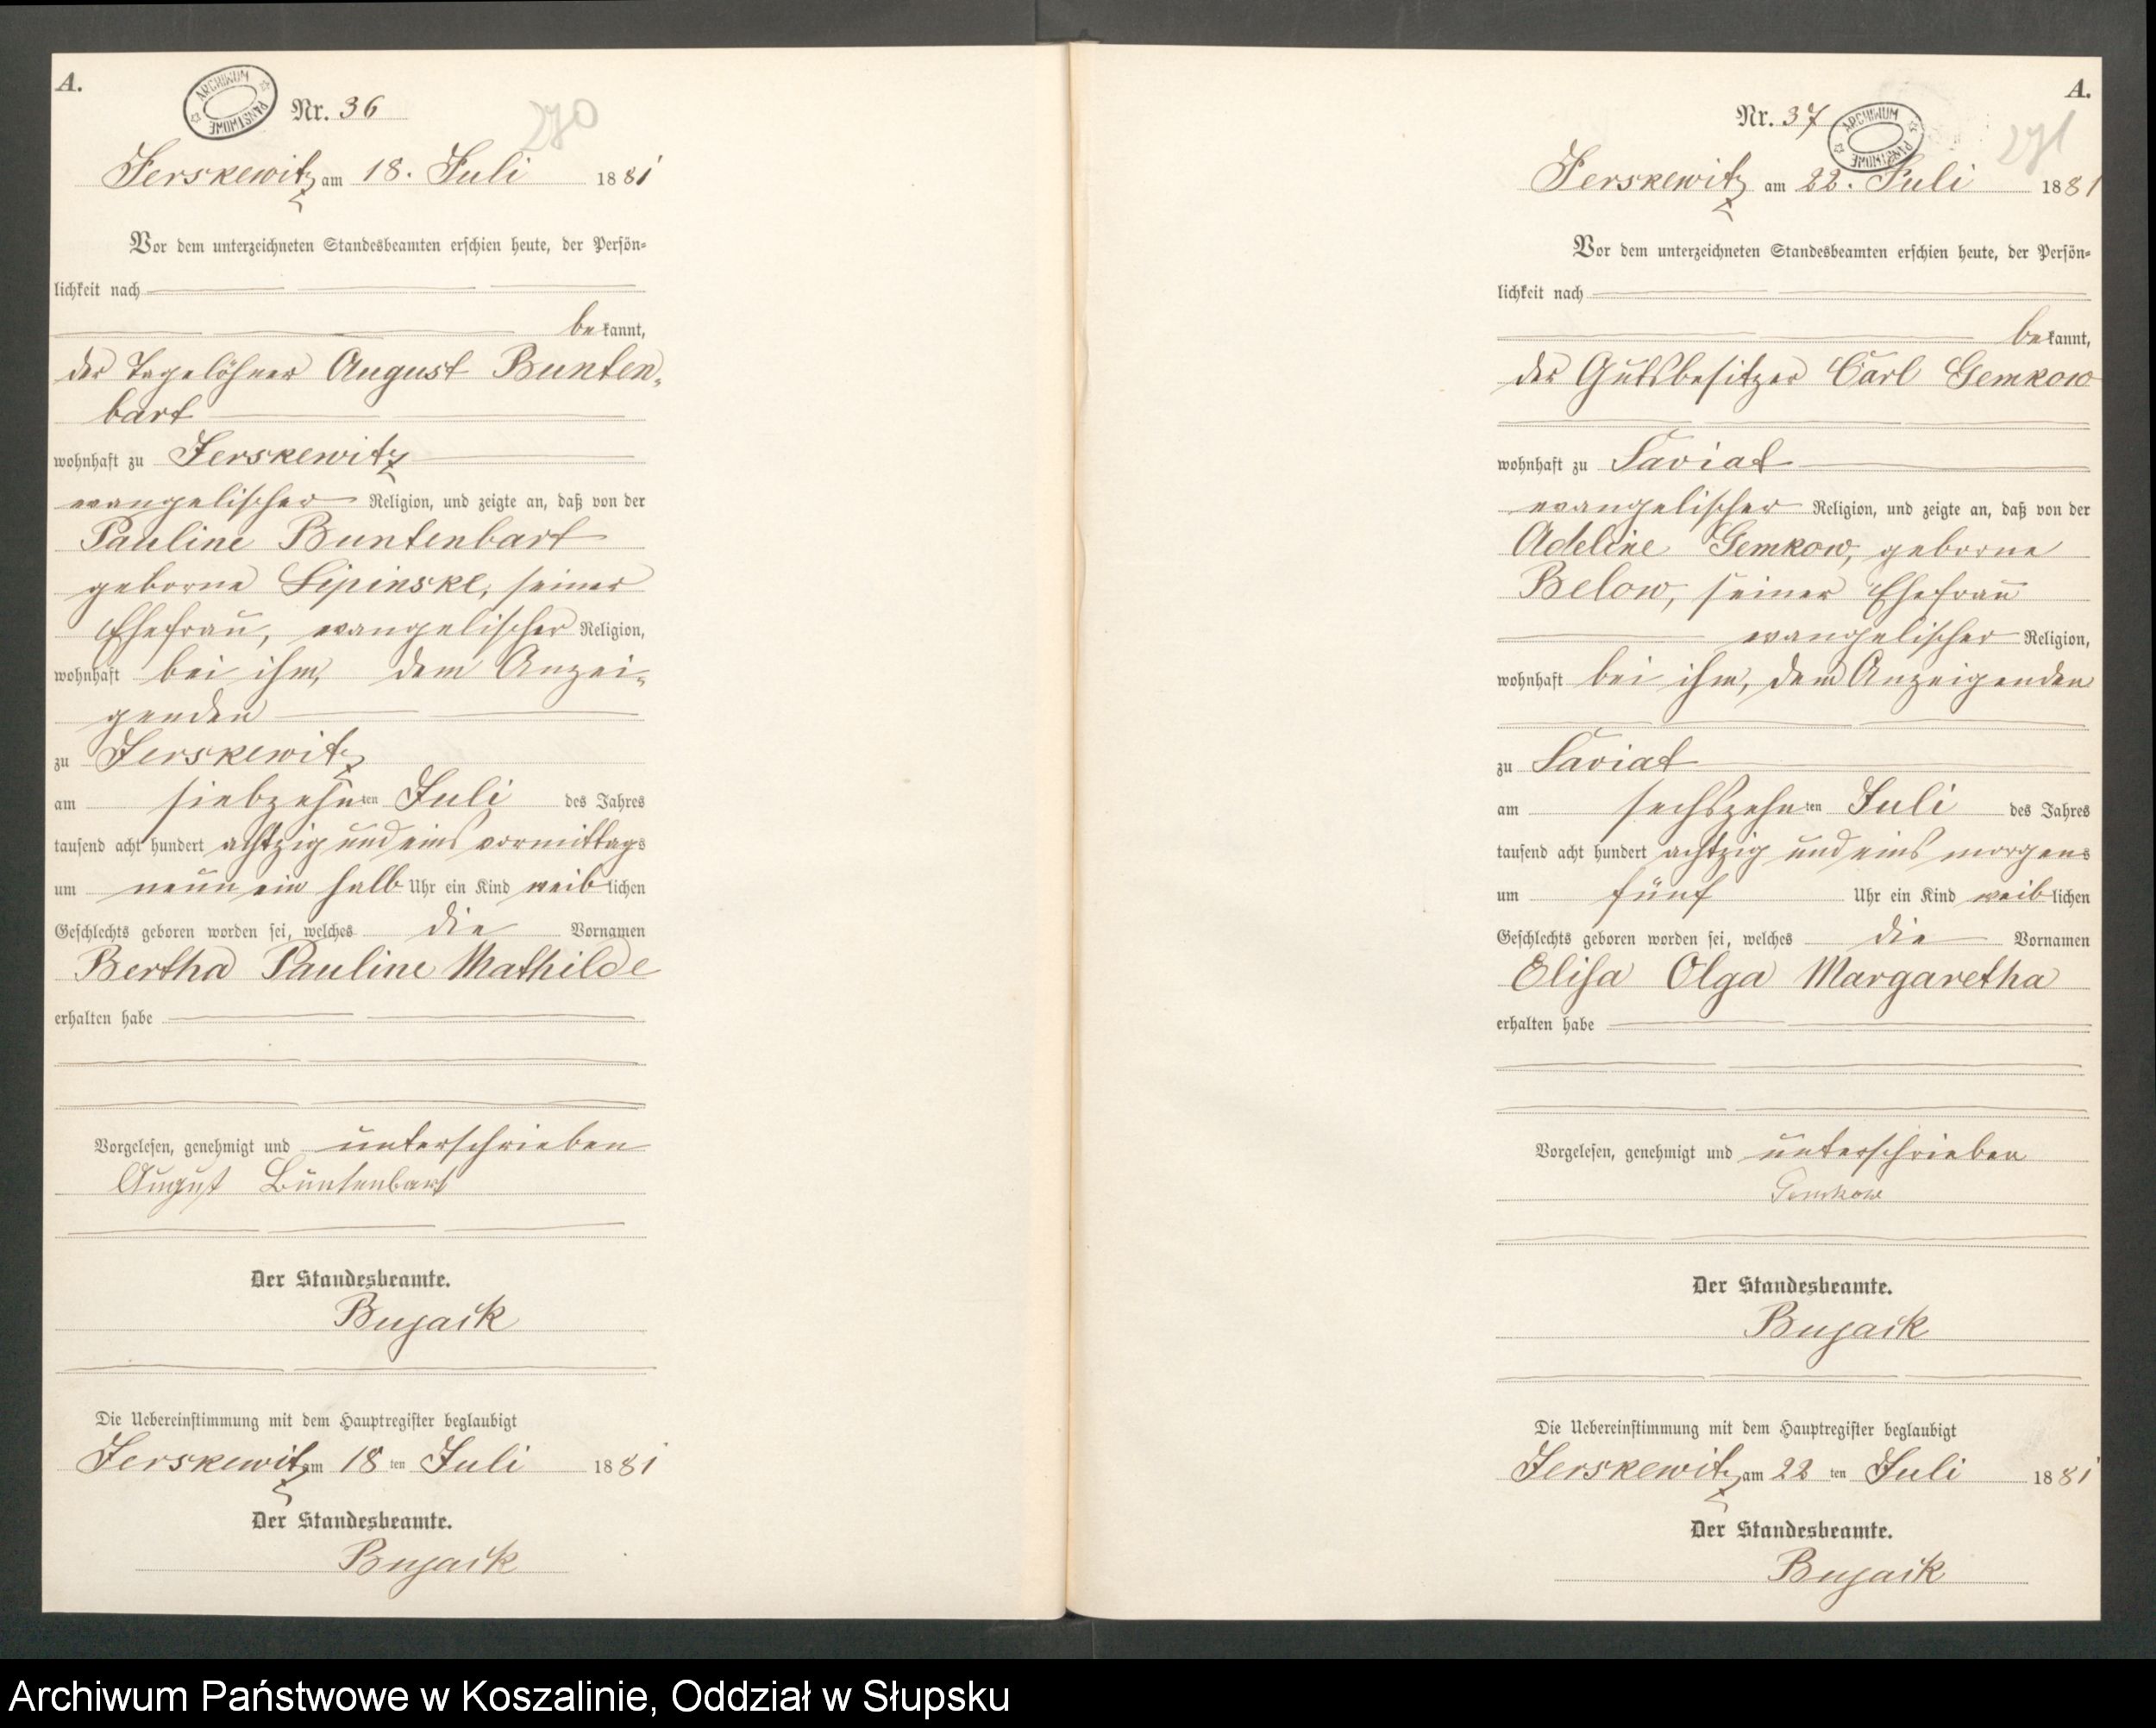 A.
ARCHIWUM PAŃSTWOWE
Nr. 36
270
Jerskewitz am 18. Juli 1881
Vor dem unterzeichneten Standesbeamten erschien heute, der Persön-
lichkeit nach
bekannt,
der Tagelöhner August Bunten-
bart
wohnhaft zu Jerskewitz
evangelischer Religion, und zeigte an, daß von der
Pauline Buntenbart
geborne Lipinske, seiner
Ehefrau, evangelischer Religion,
wohnhaft bei ihm, dem Anzei-
genden
zu Jerskewitz
am siebzehnten Juli des Jahres
tausend acht hundert achtzig und eins vormittags
um neun ein halb Uhr ein Kind weiblichen
Geschlechts geboren worden sei, welches die Vornamen
Bertha Pauline Mathilde
erhalten habe
Vorgelesen, genehmigt und unterschrieben
August Buntenbart
Der Standesbeamte.
Bujack
Die Uebereinstimmung mit dem Hauptregister beglaubigt
Jerskewitz am 18ten Juli 1881
Der Standesbeamte.
Bujack
A.
Nr. 37
ARCHIWUM PAŃSTWOWE
271
Jerskewitz am 22. Juli 1881
Vor dem unterzeichneten Standesbeamten erschien heute, der Persön-
lichkeit nach
bekannt,
der Gutsbesitzer Carl Gemkow
wohnhaft zu Saviat
evangelischer Religion, und zeigte an, daß von der
Adeline Gemkow, geborne
Below, seiner Ehefrau
evangelischer Religion,
wohnhaft bei ihm, dem Anzeigenden
zu Saviat
am sechszehnten Juli des Jahres
tausend acht hundert achtzig und eins morgens
um fünf Uhr ein Kind weiblichen
Geschlechts geboren worden sei, welches die Vornamen
Elisa Olga Margaretha
erhalten habe
Vorgelesen, genehmigt und unterschrieben
Gemkow
Der Standesbeamte.
Bujack
Die Uebereinstimmung mit dem Hauptregister beglaubigt
Jerskewitz am 22ten Juli 1881
Der Standesbeamte.
Bujack
Archiwum Państwowe w Koszalinie, Oddział w Słupsku